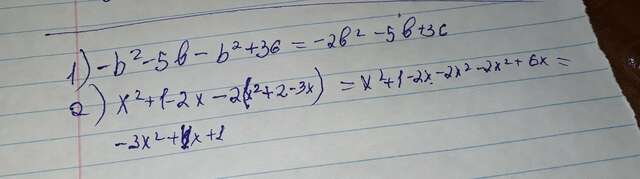 1) -b² - 5b - b² + 3c = -2b² - 5b + 3c
2) x² + 1 - 2x - 2(x² + 2 - 3x) = x² + 1 - 2x - 2x² - 2x² + 6x =
-3x² + 4x + 1